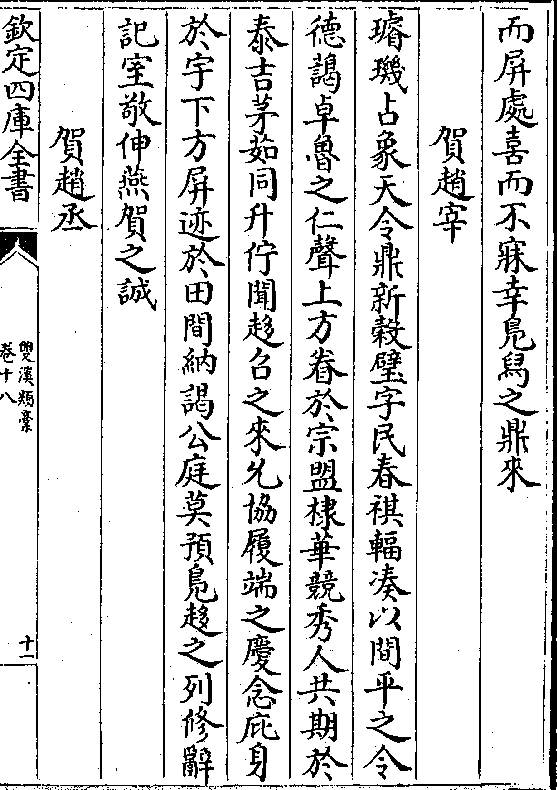 而屏處喜而不寐幸鳬舄之鼎來
賀趙宰
璿璣占象天令鼎新穀璧字民春祺輻湊以間平之令
德藹卓魯之仁聲上方眷於宗盟棣華競秀人共期於
泰吉茅茹同升佇聞趨召之來允協履端之慶念庇身
於宇下方屏迹於田間納謁公庭莫預鳬趨之列修辭
記室敬伸燕賀之誠
賀趙丞
欽定四庫全書
雙溪類稾
卷十八
十一